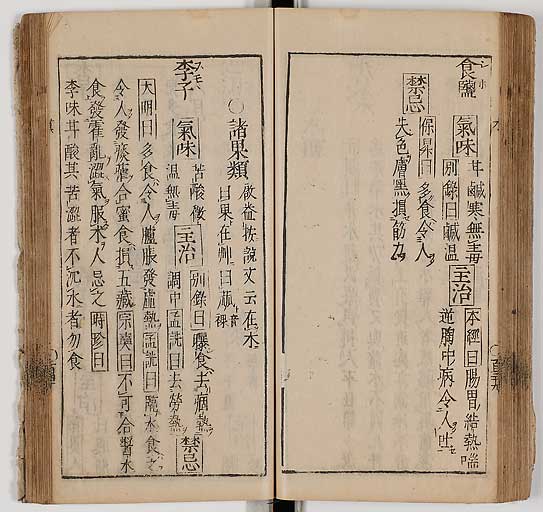 食鹽 シホ
氣味 甘鹹寒無毒
別錄曰鹹溫
主治 本經曰腸胃結熱喘
逆胸中病令人吐
禁忌 保昇曰多食令人
失色膚黑損筋力
○諸果類 啟益按說文云在木
曰果在艸曰蓏 音裸
李子 スモヽ 氣味 苦酸微
溫無毒
主治 別錄曰曝食去痼熱
調中孟詵曰去勞熱
禁忌
大明曰多食令人臚脹發虛熱孟詵曰臨水食之
令人發痰瘧合蜜食損五藏宗奭曰不可合漿水
食發霍亂澀氣服朮人忌之時珍曰
李味甘酸其苦澀者不沉水者勿食